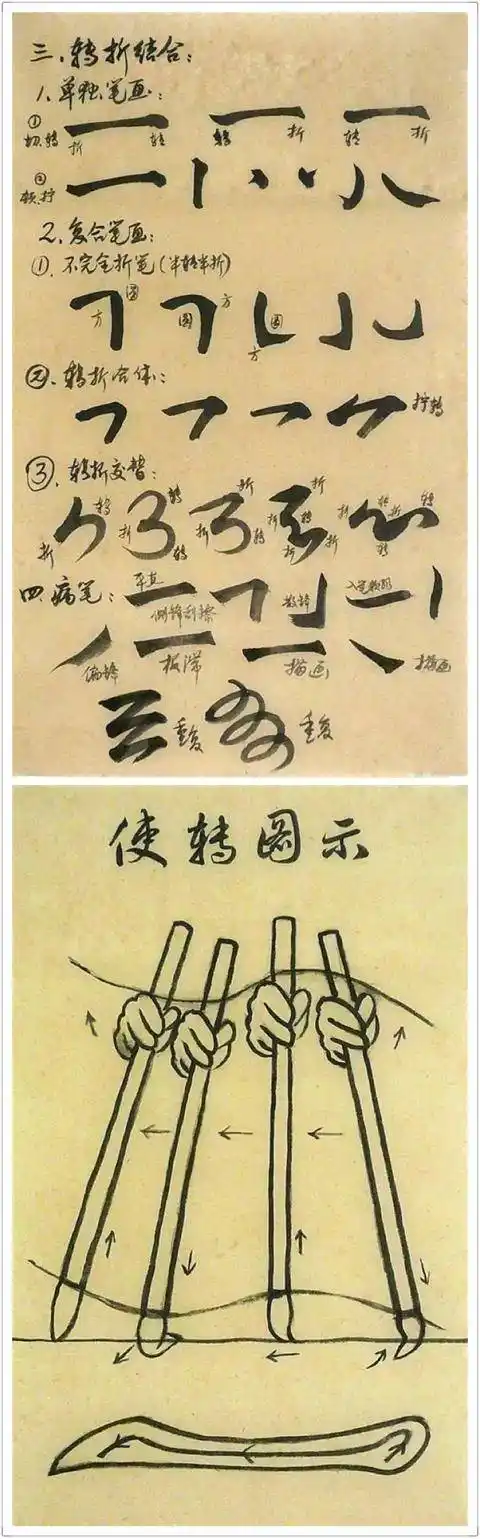 三、转折结合：
1、单独笔画：
① 切、转 折 转 转 折 转 折
② 顿、拧
2、复合笔画：
①、不完全折笔（半转半折）
方 圆 圆 方 圆 方
②、转折合体：
拧转
③、转折交替：
折 转 折 转 转 折 折 转 折 折 转 折 折 折 转 折 转 转
四、病笔：
平直 侧锋刮擦 散锋
偏锋 板滞 描画 描画
重复 重复
使转图示